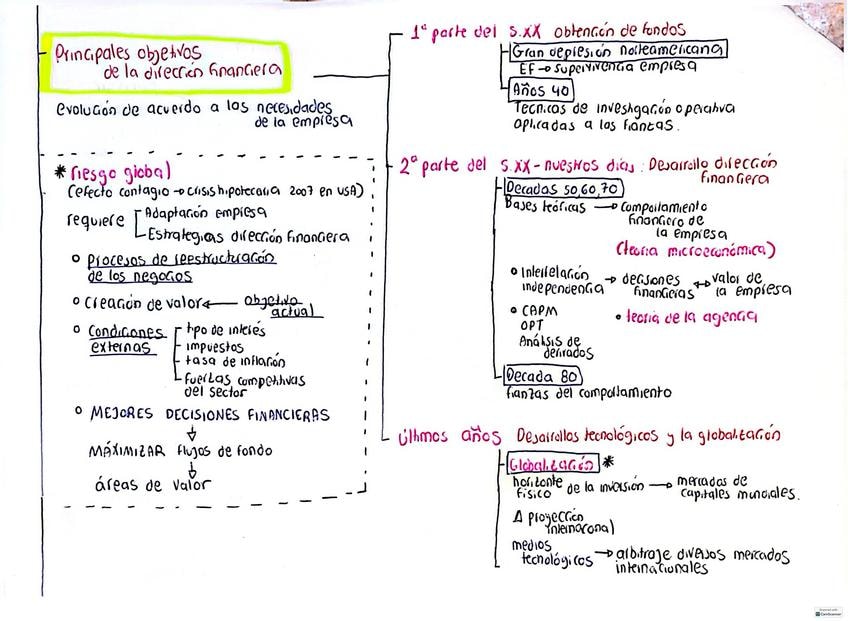 Principales objetivos
de la dirección financiera
evolución de acuerdo a las necesidades
de la empresa
* riesgo global
(efecto contagio → crisis hipotecaria 2007 en USA)
requiere
Adaptación empresa
Estrategias dirección financiera
procesos de reestructuración
de los negocios
creación de valor ← objetivo
actual
condiciones
externas
tipo de interés
impuestos
tasa de inflación
fuerzas competitivas
del sector
MEJORES DECISIONES FINANCIERAS
↓
MÁXIMIZAR flujos de fondo
↓
áreas de valor
1ª parte del S.XX obtención de fondos
Gran depresión norteamericana
EF → supervivencia empresa
Años 40
Tecnicas de investigación operativa
aplicadas a las fianzas.
2ª parte del S.XX - nuestros días: Desarrollo dirección
financiera
Decadas 50,60,70
Bases teóricas → comportamiento
financiero de
la empresa
(teoria microeconómica)
Interrelación
independencia → decisiones
financieras ↔ valor de
la empresa
CAPM
OPT
Análisis de
derivados
• teoría de la agencia
Decada 80
fianzas del comportamiento
últimos años Desarrollos tecnológicos y la globalización
Globalización *
horizonte
físico de la inversión → mercados de
capitales mundiales.
Δ proyección
internacional
medios
tecnológicos → arbitraje diversos mercados
internacionales
CamScanner